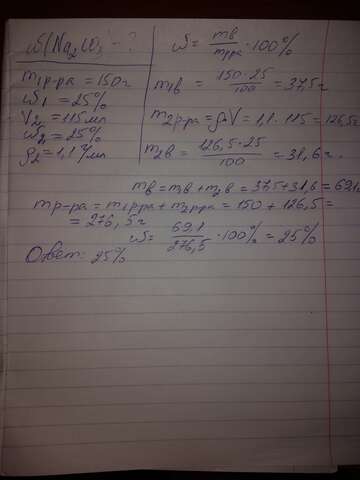 ω(Na₂CO₃) - ?
m₁р-ра = 150г
ω₁ = 25%
V₂ = 115мл
ω₂ = 25%
ρ₂ = 1,1 г/мл
ω = mв/mрра · 100%
m₁в = 150 · 25/100 = 37,5г
m₂р-ра = ρ·V = 1,1 · 115 = 126,5г
m₂в = 126,5 · 25/100 = 31,6г.
mв = m₁в + m₂в = 37,5 + 31,6 = 69,1
mр-ра = m₁рра + m₂рра = 150 + 126,5 =
= 276,5г
ω = 69,1/276,5 · 100% = 25%
Ответ: 25%